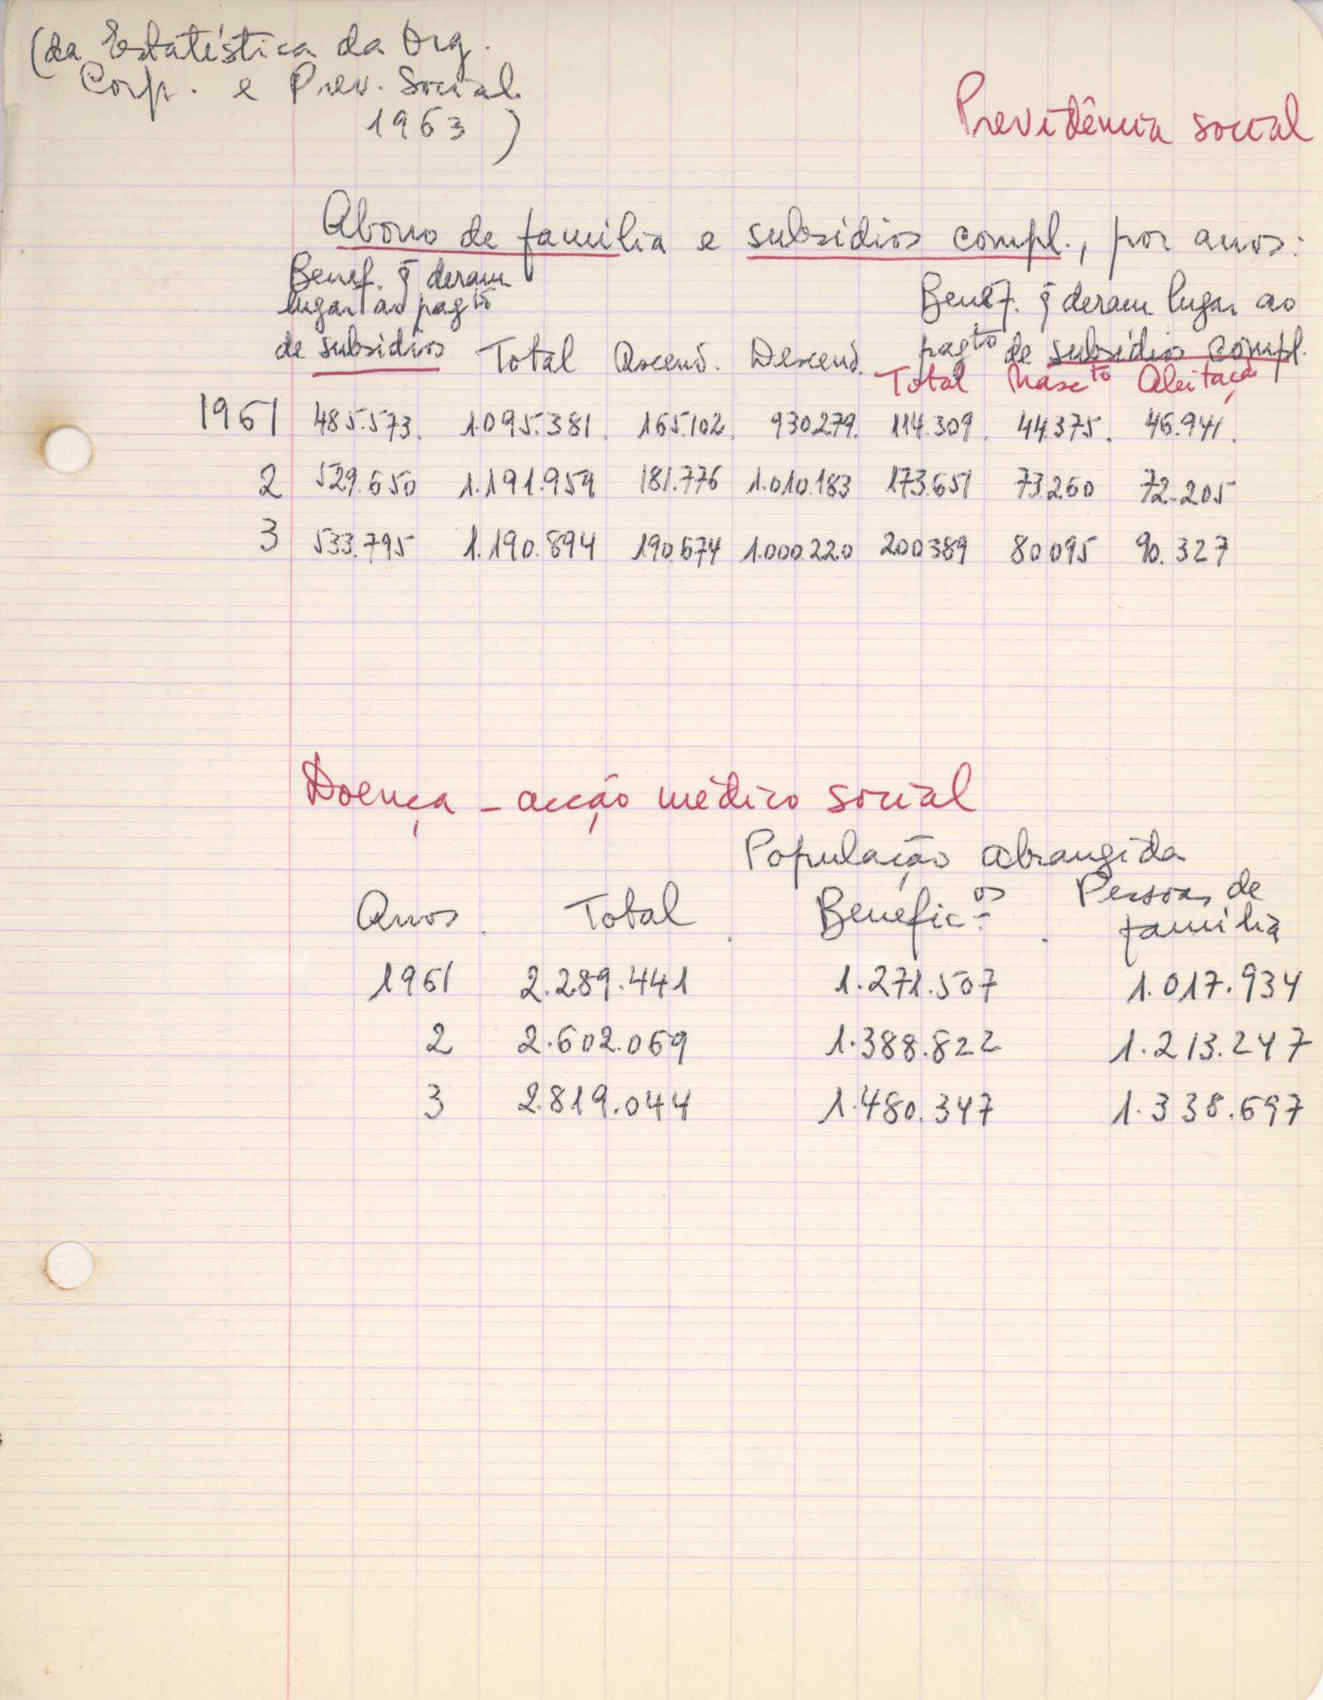 (da Estatística da Org.
Corp. e Prev. Social
1963)
Previdência social
Abono de família e subsídios compl., por anos:
Benef. q̃ deram
lugar ao pagto
de subsídios Total Ascend. Descend.
Benef. q̃ deram lugar ao
pagto de subsídios compl.
Total Nascto Aleitação
1961 485.573. 1.095.381. 165.102. 930.279. 114.309. 44.375. 46.941.
2 529.650 1.191.959 181.776 1.010.183 173.651 73.260 72.205
3 533.795 1.190.894 190.674 1.000.220 200389 80095 90.327
Doença – acção médico social
População abrangida
Anos. Total. Benefic.os. Pessoas de
família
1961 2.289.441 1.271.507 1.017.934
2 2.602.069 1.388.822 1.213.247
3 2.819.044 1.480.347 1.338.697